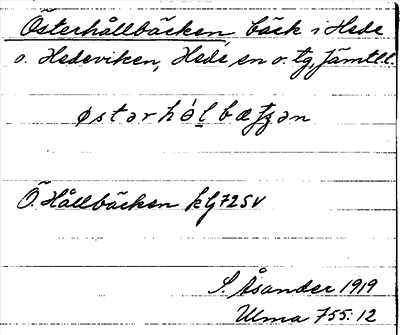 Österhållbäcken, bäck i Hede
o. Hedeviken, Hede sn o. tg, Jämtl.l.
østərhól bæʃʒən
Ö. Hållbäcken kG725V
S. Åsander 1919
Ulma 755:12